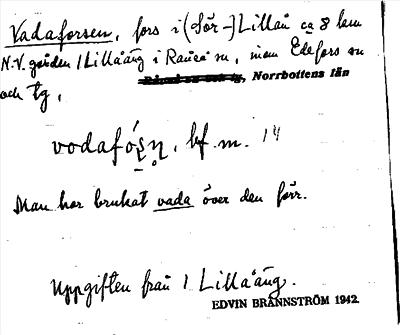 Vadaforsen, fors i (Sör-)Lillån ca 8 km
N.V. gården 1 Lillåäng i Råneå sn, inom Edefors sn
Norrbottens län
och tg,
vodafó̱ṣṇ, bf. m. 14
Man har brukat vada över den förr.
Uppgiften från 1 Lillåäng.
EDVIN BRÄNNSTRÖM 1942.